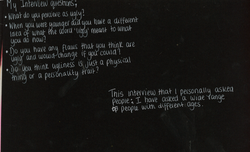 My Interview questions:
• What do you perceive as ugly?
• When you were younger did you have a different
idea of what the word 'ugly' meant to what
you do now?
• Do you have any flaws that you think are
'ugly' and would change if you could?
• Do you think ugliness is just a physical
thing or a personality trait?
This interview that I personally asked
people; I have asked a wide range
of people with different ages.